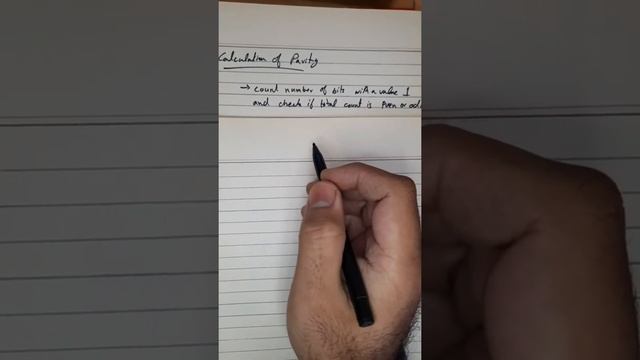 Calculation of Parity
→ count number of bits with a value 1
and check if total count is even or odd